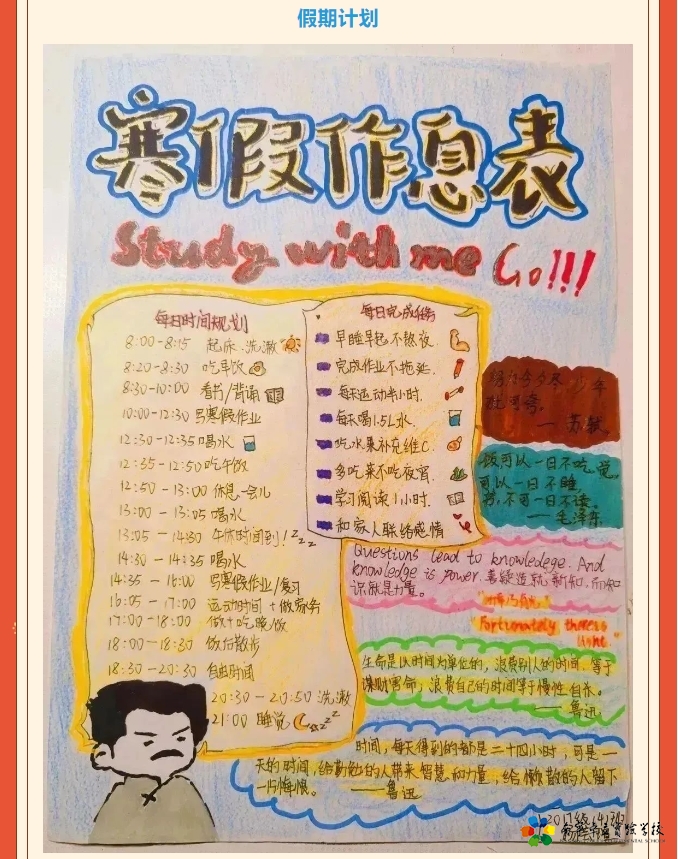 假期计划
寒假作息表
Study with me Go!!!
每日时间规划
8:00-8:15 起床、洗漱
8:20-8:30 吃早饭
8:30-10:00 看书/背诵
10:00-12:30 写寒假作业
12:30-12:35 喝水
12:35-12:50 吃午饭
12:50-13:00 休息一会儿
13:00-13:05 喝水
13:05-14:30 午休时间到!zzz
14:30-14:35 喝水
14:35-16:00 写寒假作业/复习
16:05-17:00 运动时间+做家务
17:00-18:00 做+吃晚饭
18:00-18:30 饭后散步
18:30-20:30 自由时间
20:30-20:50 洗漱
21:00 睡觉 zzz
每日完成任务
早睡早起不熬夜.
完成作业不拖延.
每天运动半小时.
每天喝1.5L水.
吃水果补充维C.
多吃菜不吃夜宵.
学习阅读1小时.
和家人联络感情
少年
一 苏轼
饭可以一日不吃,觉
可以一日不睡
书,不可一日不读。
——毛泽东
Questions lead to knowledege. And
knowledge is power. 质疑造就新知,而知
识就是力量。
"Fortunately there is
light."
生命是以时间为单位的,浪费别人的时间,等于
谋财害命;浪费自己的时间等于慢性自杀。
——鲁迅
时间,每天得到的都是二十四小时,可是一
天的时间,给勤勉的人带来智慧和力量,给懒散的人留下
一片悔恨。 ——鲁迅